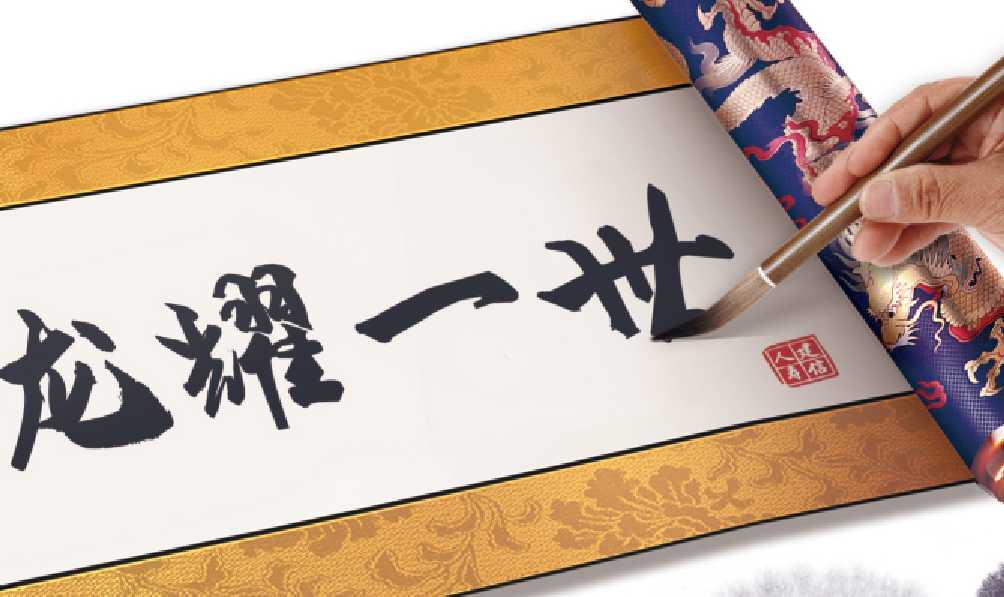 龙耀一世
建信
人寿